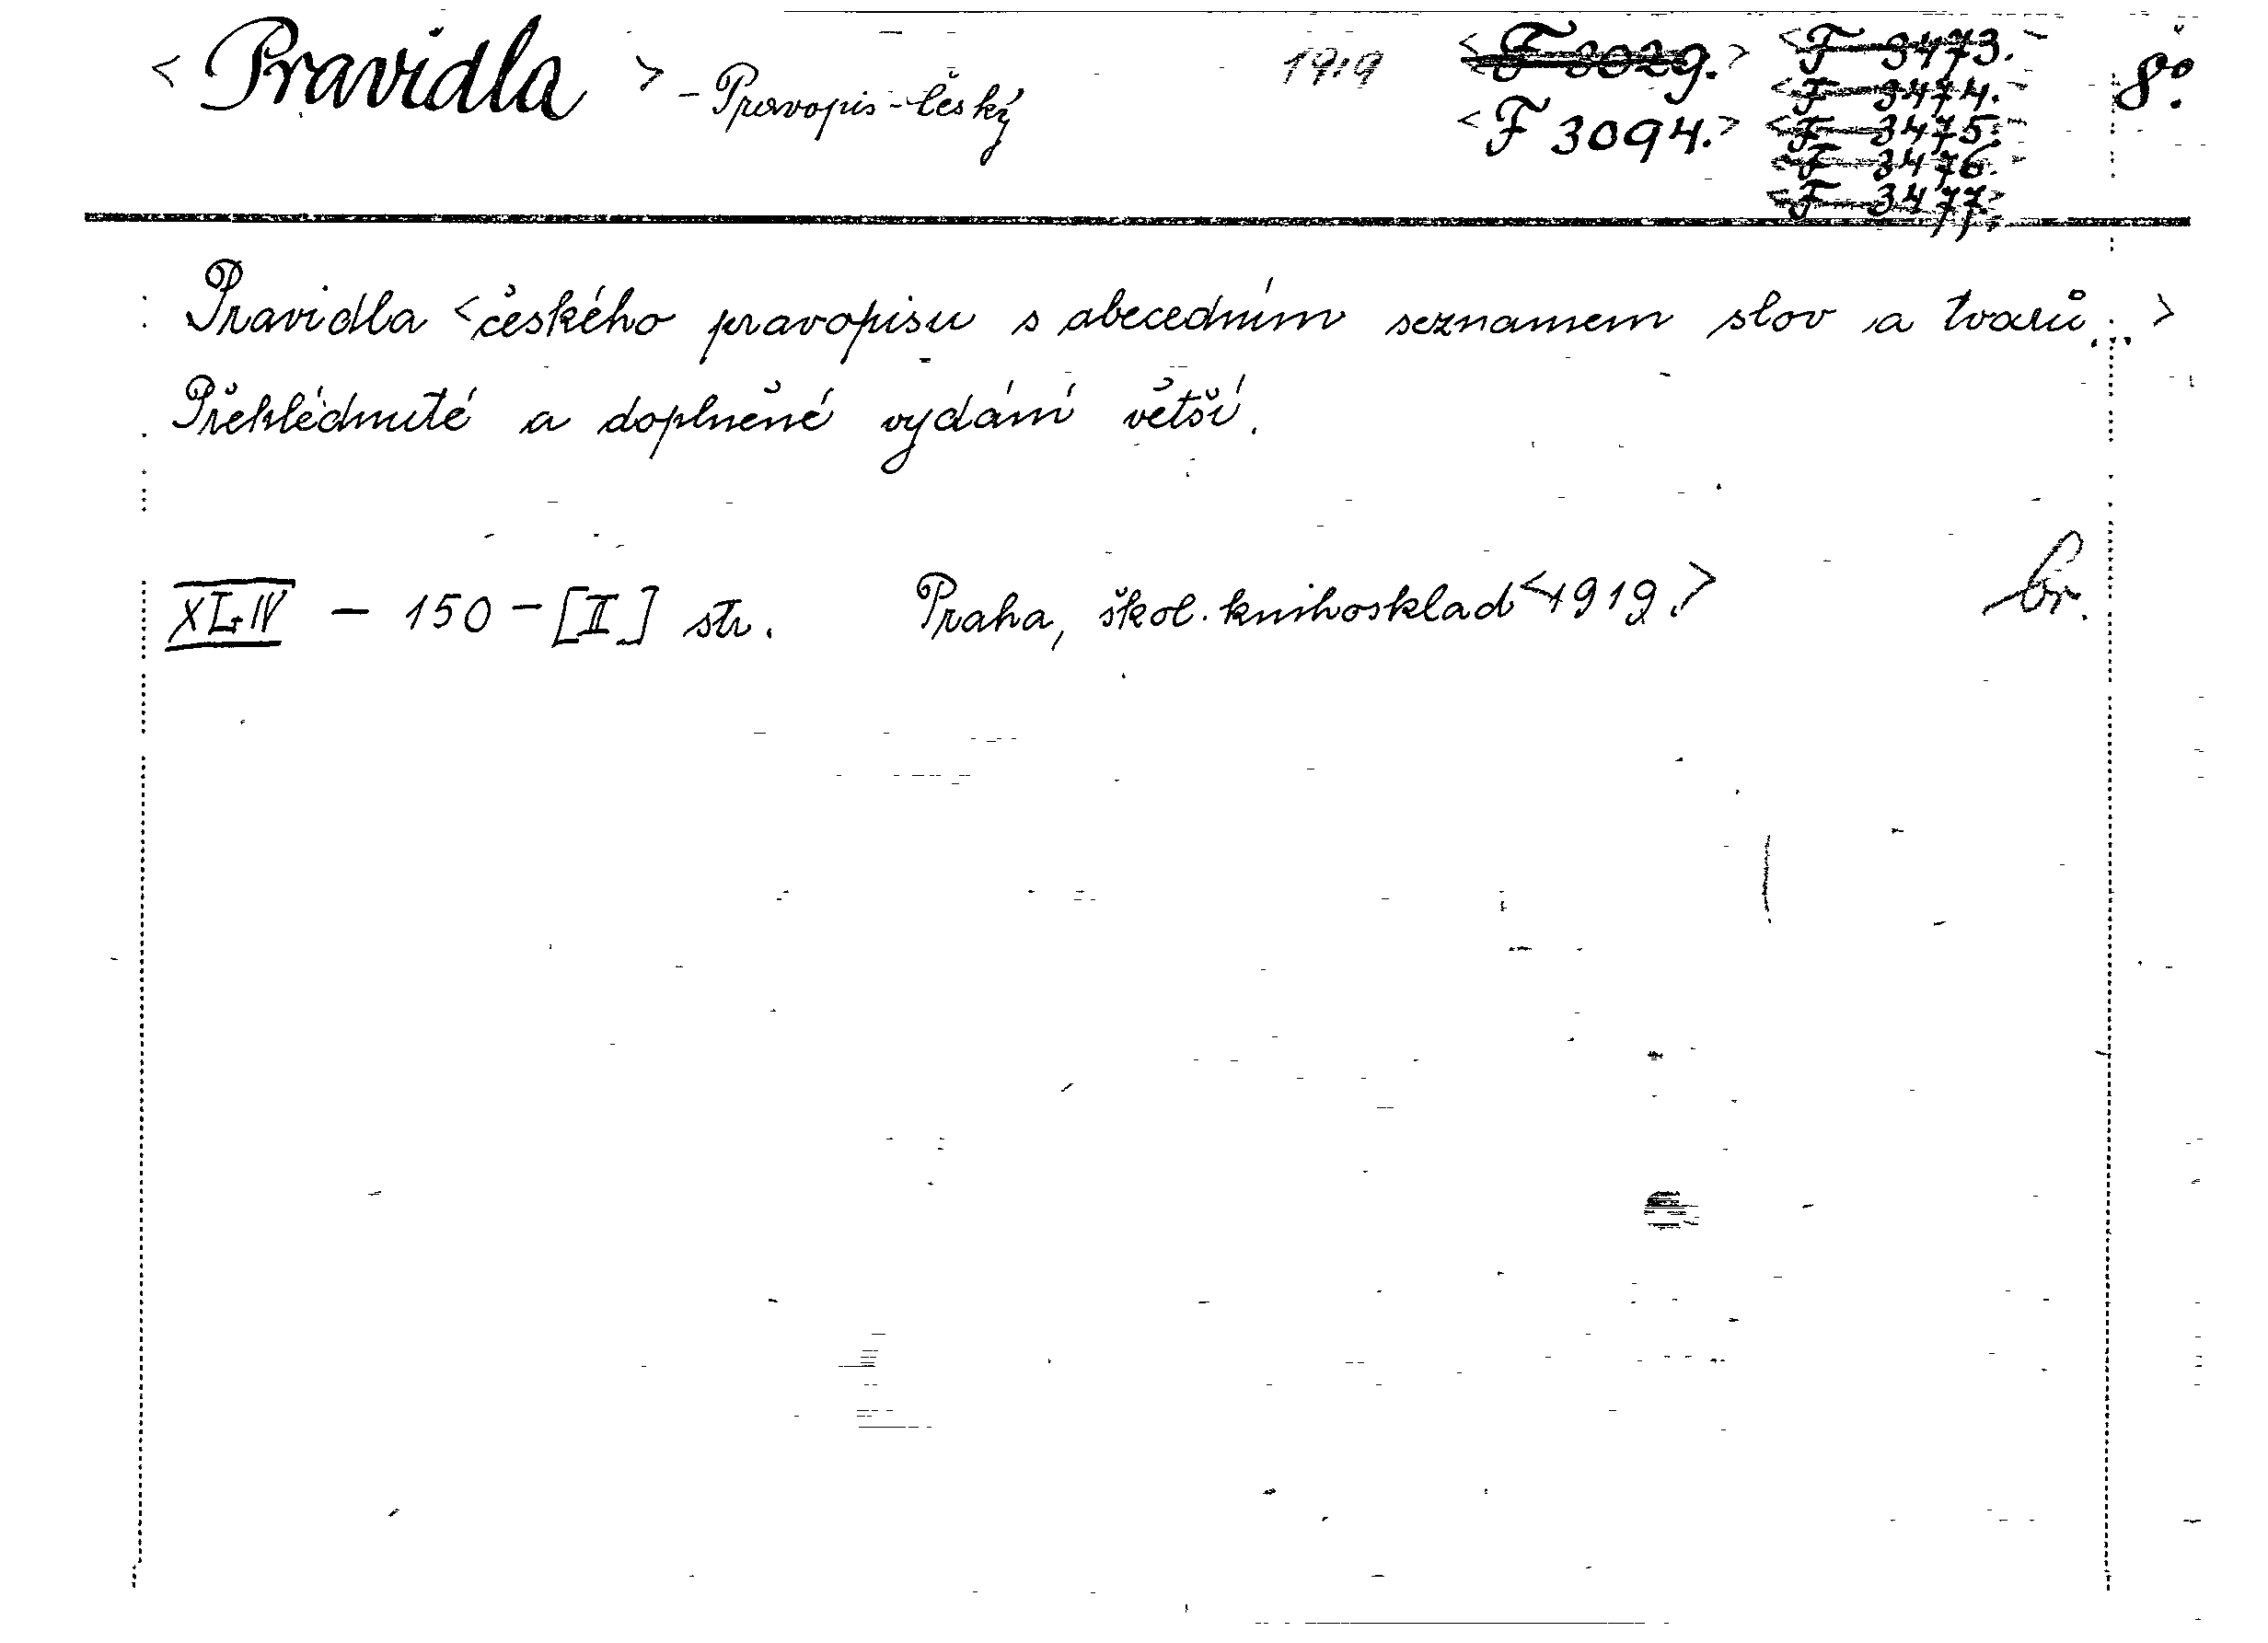 < Pravidla > – Pravopis - český 1919 < F 3029. > < F 3473. 8°.
< F 3474.
< F 3094. > < F 3475.
< F 3476.
< F 3477.
Pravidla < českého pravopisu s abecedním seznamem slov a tvarů... >
Přehlédnuté a doplněné vydání větší.
XLIV – 150 – [II] str. Praha, škol. knihosklad < 1919. > br.